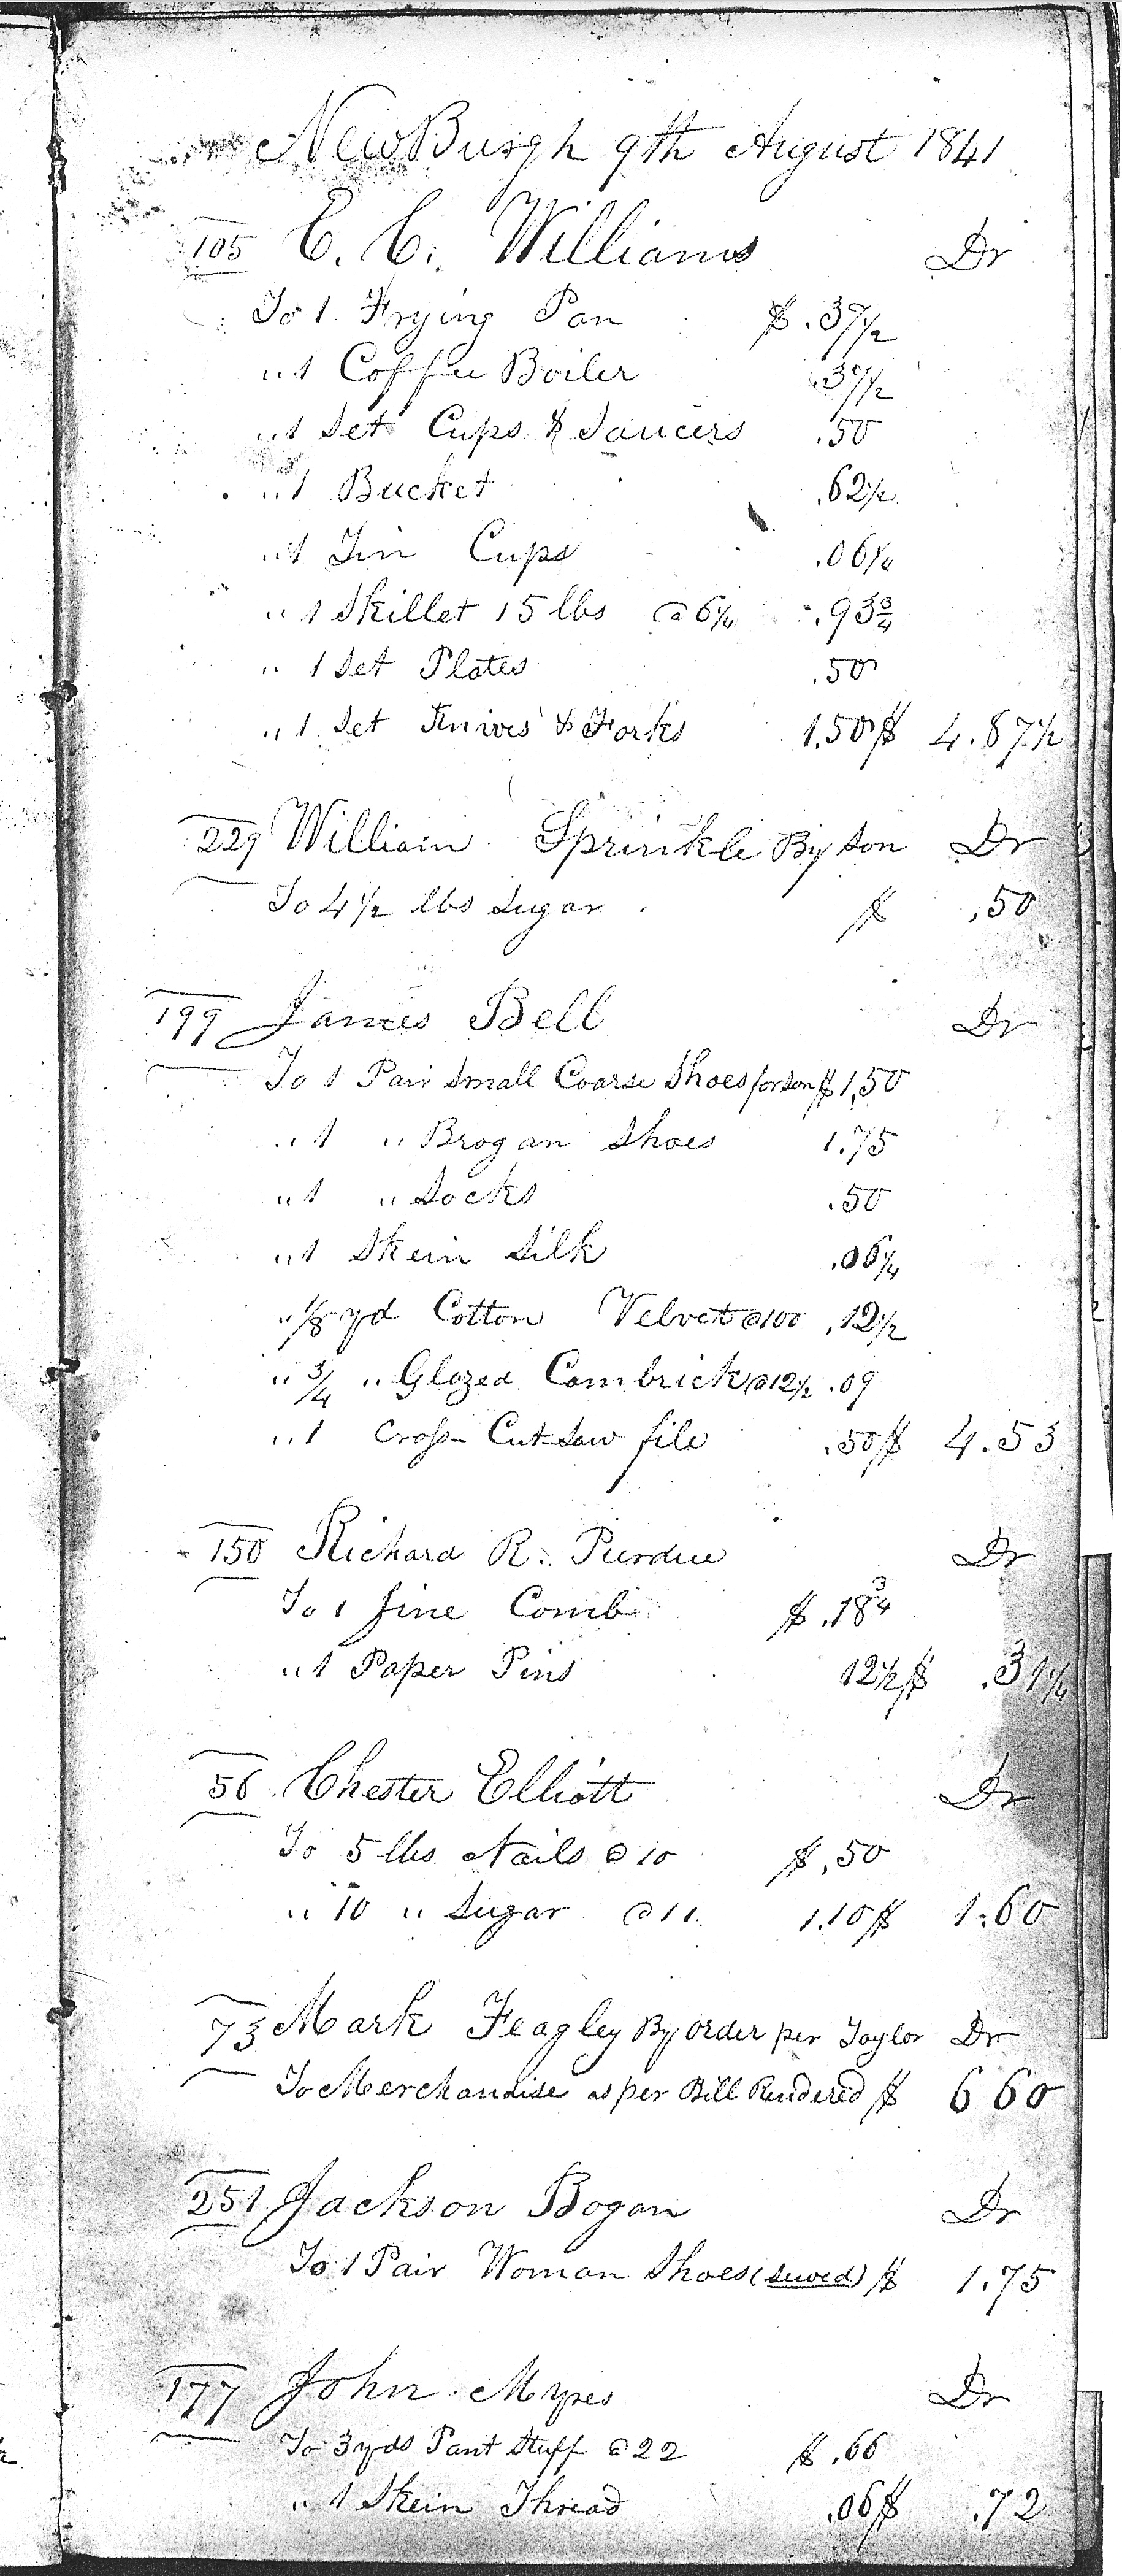 NewBurgh 9th August 1841
105 C. C. Williams Dr
To 1 Frying Pan $ .37 1/2
" 1 Coffee Boiler .37 1/2
" 1 Set Cups & Saucers .50
" 1 Bucket .62 1/2
" 1 Tin Cups .06 1/4
" 1 Skillet 15 lbs @ 6 1/4 .93 3/4
" 1 Set Plates .50
" 1 Set Knives & Forks 1.50 $ 4.87 1/2
229 William Sprinkle By Son Dr
To 4 1/2 lbs Sugar $ .50
199 James Bell Dr
To 1 Pair Small Coarse Shoes for Son $ 1,50
" 1 " Brogan Shoes 1.75
" 1 " Socks .50
" 1 Skein Silk .06 1/4
" 1/8 yd Cotton Velvet @ 100 .12 1/2
" 3/4 " Glazed Cambrick @ 12 1/2 .09
" 1 Cross Cut Saw file .50 $ 4.53
150 Richard R. Purdue Dr
To 1 fine Comb $ .18 3/4
" 1 Paper Pins 12 1/2 $ .31 1/4
56 Chester Elliott Dr
To 5 lbs Nails @ 10 $ .50
" 10 " Sugar @ 11 1.10 $ 1.60
73 Mark Feagley By order per Taylor Dr
To Merchandise as per Bill Rendered $ 6 60
251 Jackson Bogan Dr
To 1 Pair Woman Shoes (sewed) $ 1.75
177 John Mypes Dr
To 3 yds Pant Stuff @ 22 $ .66
" 1 Skein Thread .06 $ .72